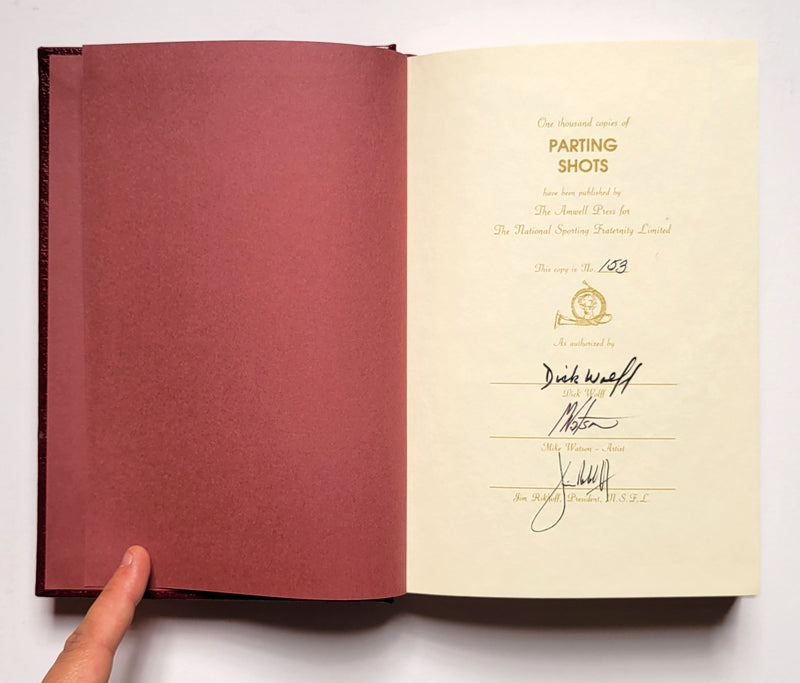 One thousand copies of
PARTING
SHOTS
have been published by
The Amwell Press for
The National Sporting Fraternity Limited
This copy is No. 153
As authorized by
Dick Wolff
Dick Wolff
MWatson
Mike Watson - Artist
Jim Rikhoff
Jim Rikhoff, President, N.S.F.L.